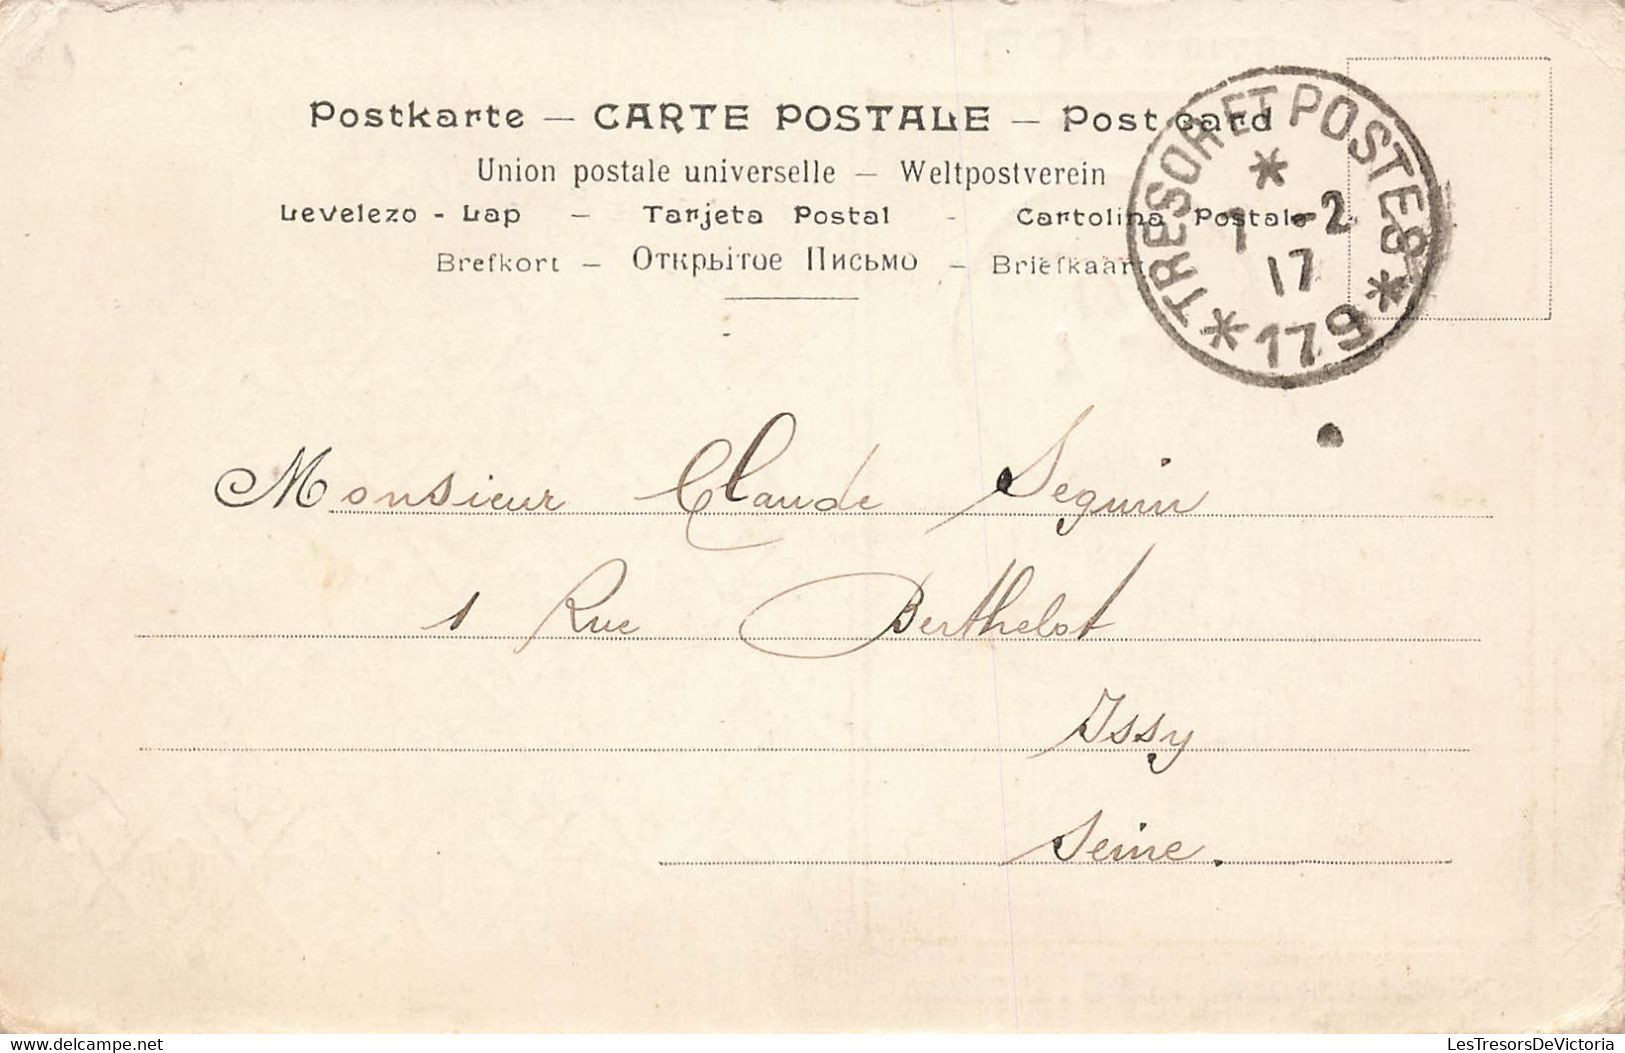 Postkarte — CARTE POSTALE — Post card
Union postale universelle — Weltpostverein
Levelezo - Lap — Tarjeta Postal - Cartolina Postale
Brefkort — Открытое Письмо — Briefkaart
TRESOR ET POSTES
* 7 -2
17
* 179 *
Monsieur Claude Seguin
1 Rue Berthelot
Issy
Seine.
www.delcampe.net
LesTresorsDeVictoria